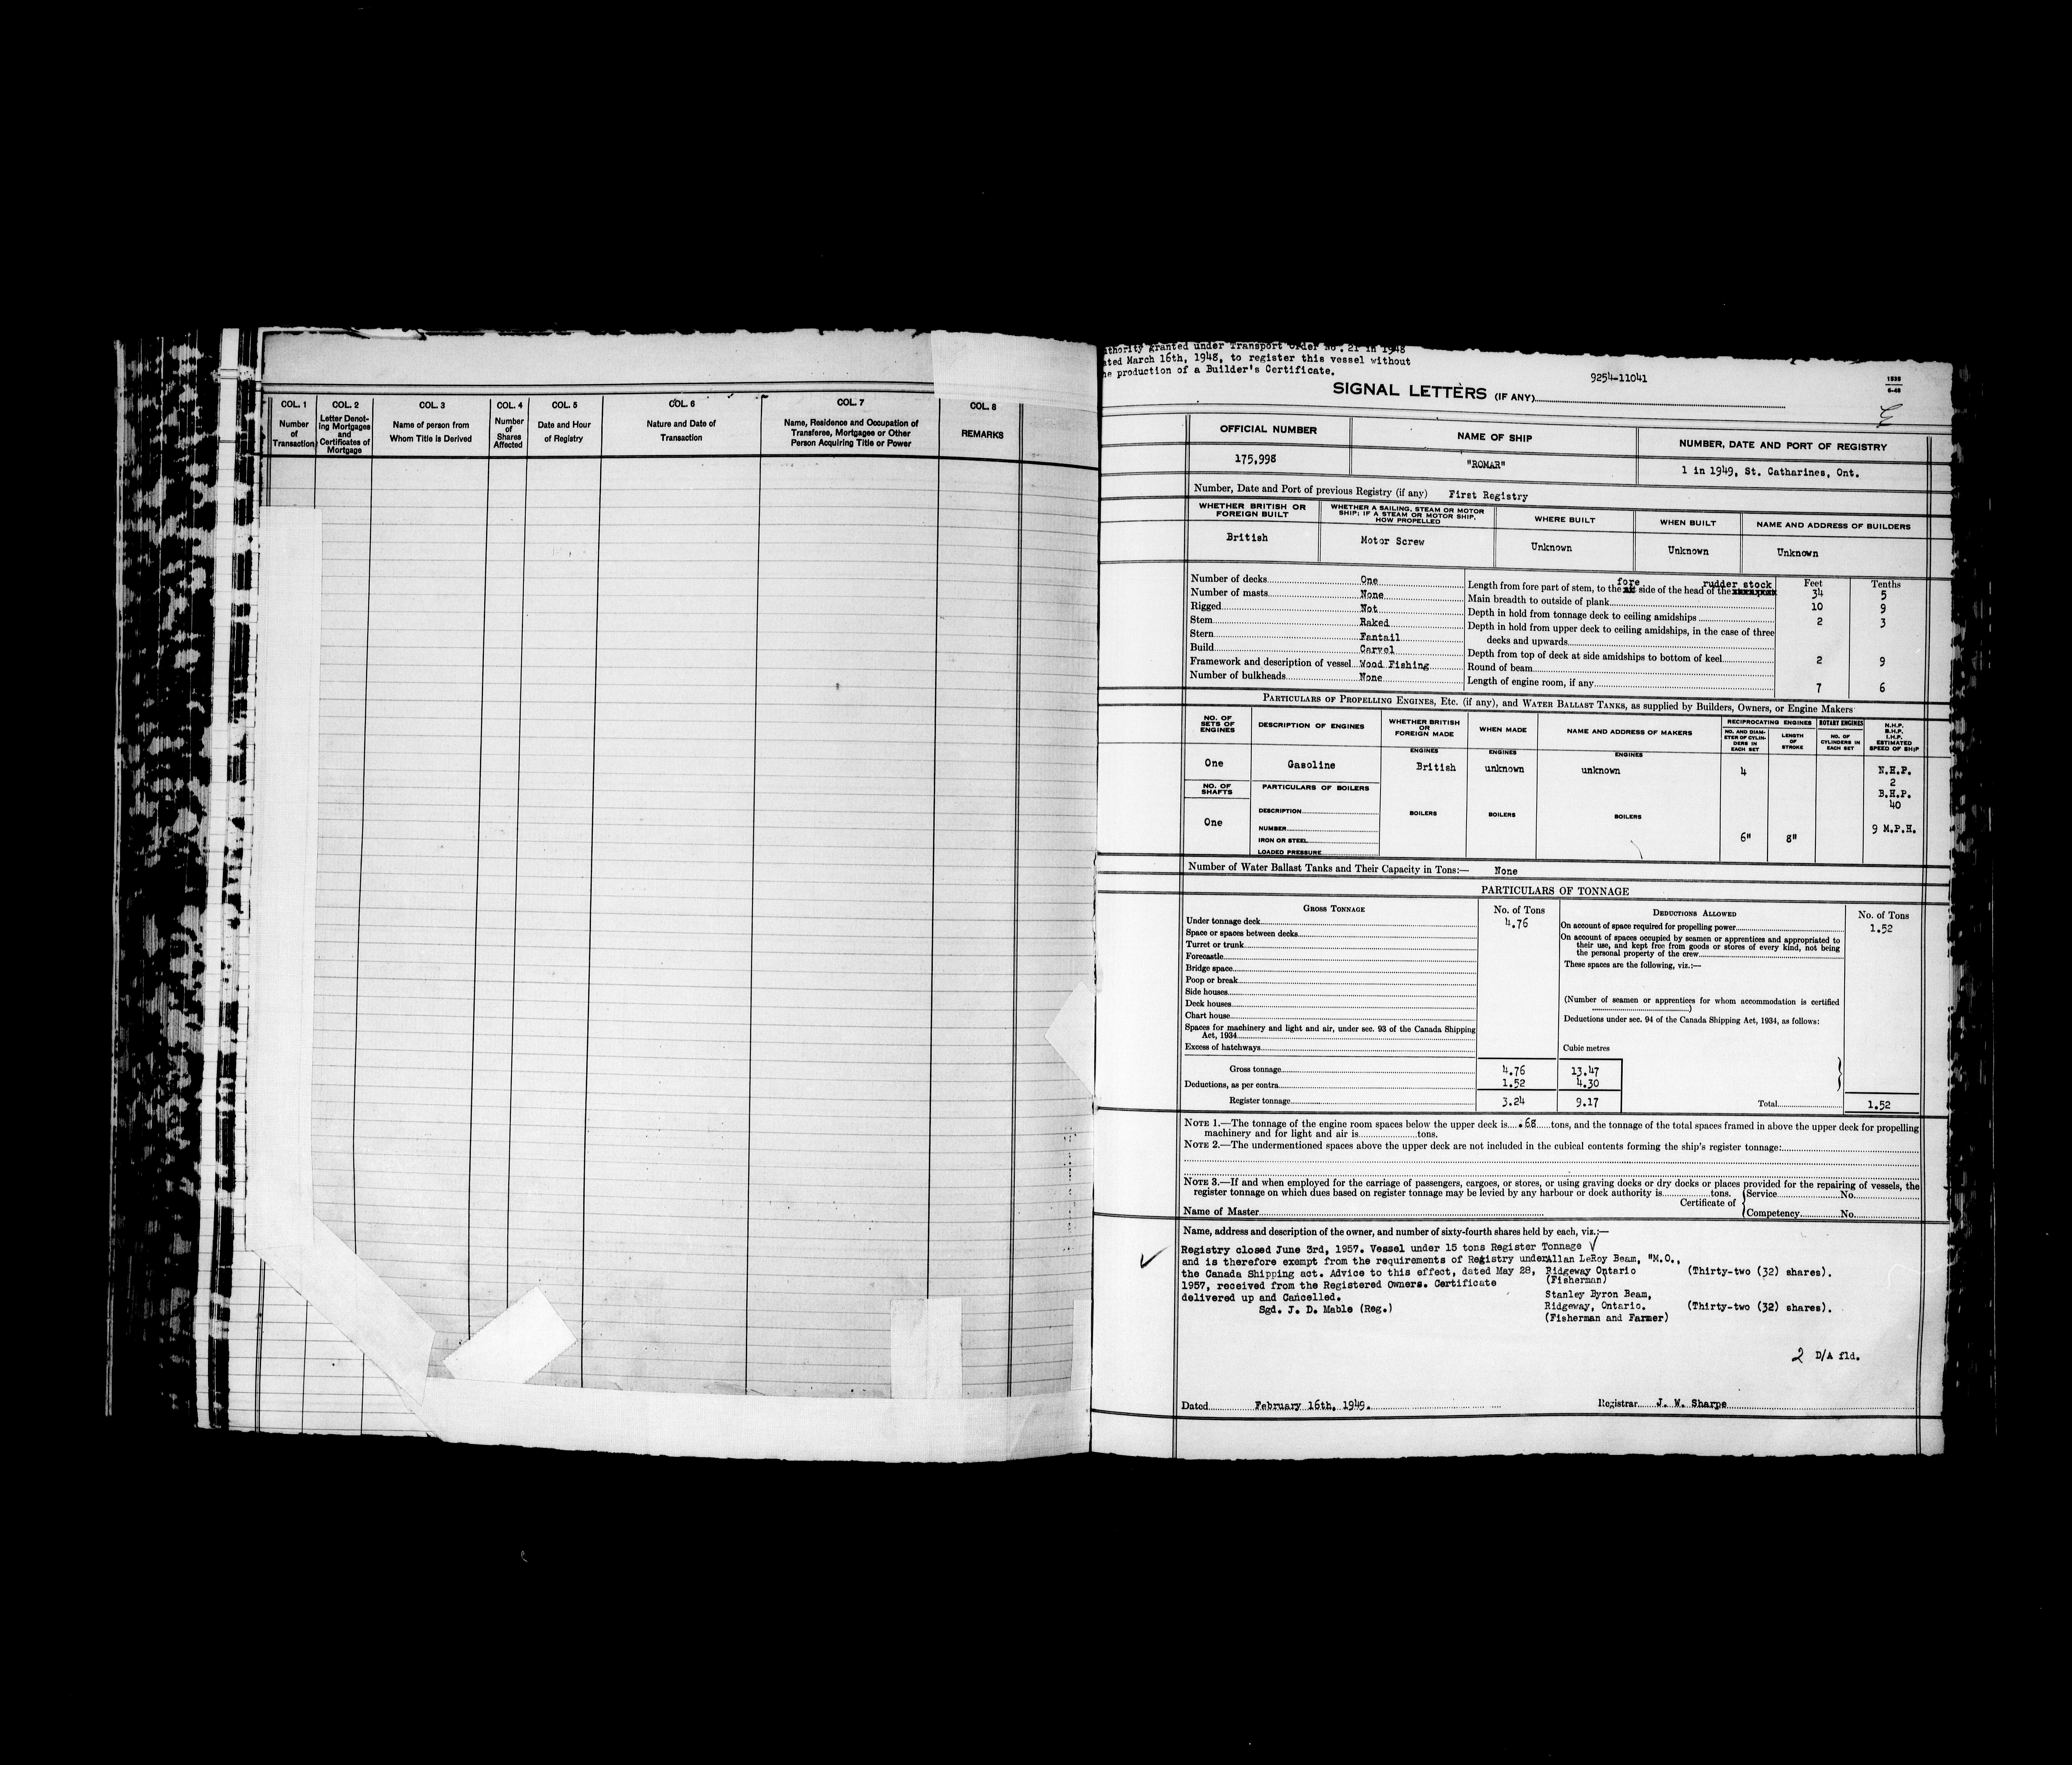 COL. 1
Number
of
Transaction
COL. 2
Letter Denot-
ing Mortgages
and
Certificates of
Mortgage
COL. 3
Name of person from
Whom Title is Derived
COL. 4
Number
of
Shares
Affected
COL. 5
Date and Hour
of Registry
COL. 6
Nature and Date of
Transaction
COL. 7
Name, Residence and Occupation of
Transferee, Mortgagee or Other
Person Acquiring Title or Power
COL. 8
REMARKS
thority granted under Transport Order No. 21 in 1948
ated March 16th, 1948, to register this vessel without
he production of a Builder's Certificate.
9254-11041
SIGNAL LETTERS (IF ANY)
OFFICIAL NUMBER
NAME OF SHIP
NUMBER, DATE AND PORT OF REGISTRY
175,998
"ROMAR"
1 in 1949, St. Catharines, Ont.
Number, Date and Port of previous Registry (if any) First Registry
WHETHER BRITISH OR
FOREIGN BUILT
WHETHER A SAILING, STEAM OR MOTOR
SHIP; IF A STEAM OR MOTOR SHIP,
HOW PROPELLED
WHERE BUILT
WHEN BUILT
NAME AND ADDRESS OF BUILDERS
British
Motor Screw
Unknown
Unknown
Unknown
Number of decks One
Number of masts None
Rigged Not
Stem Raked
Stern Fantail
Build Carvel
Framework and description of vessel Wood Fishing
Number of bulkheads None
Feet Tenths
fore rudder stock
Length from fore part of stem, to the side of the head of the 34 5
Main breadth to outside of plank 10 9
Depth in hold from tonnage deck to ceiling amidships 2 3
Depth in hold from upper deck to ceiling amidships, in the case of three
decks and upwards
Depth from top of deck at side amidships to bottom of keel 2 9
Round of beam
Length of engine room, if any 7 6
PARTICULARS OF PROPELLING ENGINES, ETC. (if any), and WATER BALLAST TANKS, as supplied by Builders, Owners, or Engine Makers
NO. OF
SETS OF
ENGINES
DESCRIPTION OF ENGINES
WHETHER BRITISH
OR
FOREIGN MADE
WHEN MADE
NAME AND ADDRESS OF MAKERS
RECIPROCATING ENGINES
ROTARY ENGINES
NO. AND DIAM-
ETER OF CYLIN-
DERS IN
EACH SET
LENGTH
OF
STROKE
NO. OF
CYLINDERS IN
EACH SET
N.H.P.
B.H.P.
I.H.P.
ESTIMATED
SPEED OF SHIP
ENGINES
ENGINES
ENGINES
One
Gasoline
British
unknown
unknown
4
N.H.P.
2
B.H.P.
40
9 M.P.H.
NO. OF
SHAFTS
PARTICULARS OF BOILERS
One
DESCRIPTION
NUMBER
IRON OR STEEL
LOADED PRESSURE
BOILERS
BOILERS
BOILERS
6"
8"
Number of Water Ballast Tanks and Their Capacity in Tons:— None
PARTICULARS OF TONNAGE
GROSS TONNAGE
No. of Tons
DEDUCTIONS ALLOWED
No. of Tons
Under tonnage deck 4.76
Space or spaces between decks
Turret or trunk
Forecastle
Bridge space
Poop or break
Side houses
Deck houses
Chart house
Spaces for machinery and light and air, under sec. 93 of the Canada Shipping
Act, 1934
Excess of hatchways
On account of space required for propelling power 1.52
On account of spaces occupied by seamen or apprentices and appropriated to
their use, and kept free from goods or stores of every kind, not being
the personal property of the crew
These spaces are the following, viz.:—
(Number of seamen or apprentices for whom accommodation is certified
)
Deductions under sec. 94 of the Canada Shipping Act, 1934, as follows:
Cubic metres
Gross tonnage 4.76 13.47
Deductions, as per contra 1.52 4.30
Register tonnage 3.24 9.17
Total 1.52
NOTE 1.—The tonnage of the engine room spaces below the upper deck is .68 tons, and the tonnage of the total spaces framed in above the upper deck for propelling
machinery and for light and air is tons.
NOTE 2.—The undermentioned spaces above the upper deck are not included in the cubical contents forming the ship's register tonnage:
NOTE 3.—If and when employed for the carriage of passengers, cargoes, or stores, or using graving docks or dry docks or places provided for the repairing of vessels, the
register tonnage on which dues based on register tonnage may be levied by any harbour or dock authority is tons.
Certificate of
Service No.
Competency No.
Name of Master
Name, address and description of the owner, and number of sixty-fourth shares held by each, viz.:—
Registry closed June 3rd, 1957. Vessel under 15 tons Register Tonnage
and is therefore exempt from the requirements of Registry under
the Canada Shipping act. Advice to this effect, dated May 28,
1957, received from the Registered Owners. Certificate
delivered up and Cancelled.
Sgd. J. D. Mable (Reg.)
Allan LeRoy Beam, "M.O.,
Ridgeway Ontario (Thirty-two (32) shares).
(Fisherman)
Stanley Byron Beam,
Ridgeway, Ontario. (Thirty-two (32) shares).
(Fisherman and Farmer)
2 D/A fld.
Dated February 16th, 1949.
Registrar J. W. Sharpe